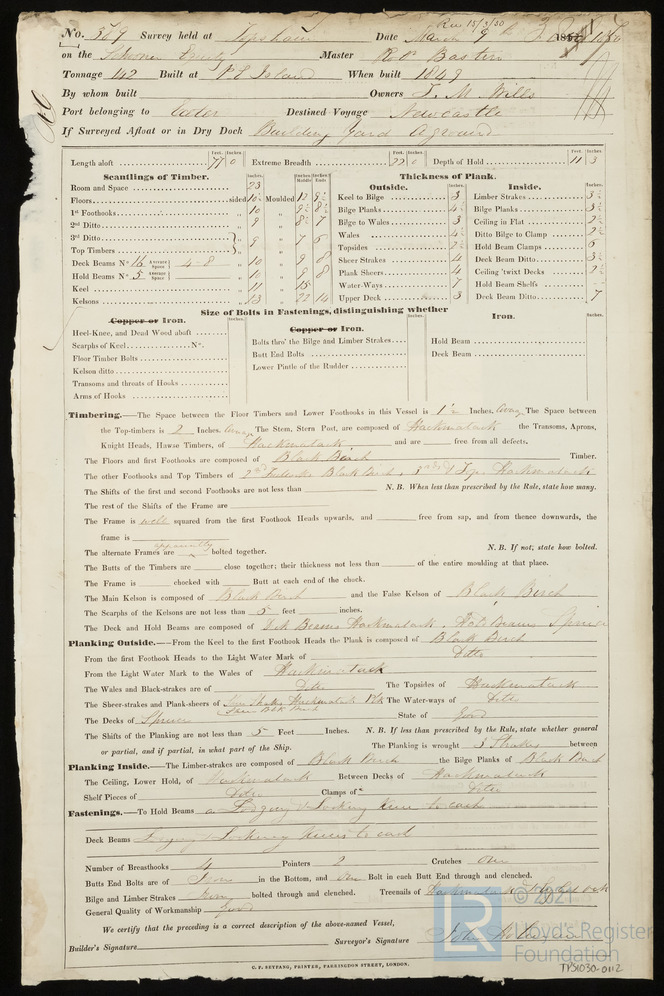 Rec 15/3/50
No. 369 Survey held at Topsham Date March 9th 1850
on the Schooner Equity Master Robt Bastin
Tonnage 142 Built at P. E. Island When built 1849
By whom built Owners T. M. Wills
Port belonging to Exeter Destined Voyage Newcastle
If Surveyed Afloat or in Dry Dock Building Yard Aground
Feet. Inches. Feet. Inches. Feet. Inches.
Length aloft 77 0 Extreme Breadth 22 0 Depth of Hold 11 3
Scantlings of Timber. Thickness of Plank.
Outside. Inside.
Room and Space 23
Floors sided 10½ Moulded 12 9½ Keel to Bilge 3 Limber Strakes 3½
1st Foothooks 10 9½ 8½ Bilge Planks 4½ Bilge Planks 3½
2nd Ditto 9 8½ 7 Bilge to Wales 3 Ceiling in Flat 2½
3rd Ditto 9 7 6 Wales 4½ Ditto Bilge to Clamp 2½
Top Timbers Topsides 2½ Hold Beam Clamps 6
Deck Beams No. 16 Average Space 4-8 10 9 8 Sheer Strakes 4 Deck Beam Ditto 3½
Hold Beams No. 5 Average Space 10 9 8 Plank Sheers 4 Ceiling 'twixt Decks 2½
Keel 11 15 Water-Ways 7 Hold Beam Shelfs
Kelsons 13 22 14 Upper Deck 3 Deck Beam Ditto 7
Size of Bolts in Fastenings, distinguishing whether
Copper or Iron. Copper or Iron. Iron.
Heel-Knee, and Dead Wood abaft Bolts thro' the Bilge and Limber Strakes Hold Beam
Scarphs of Keel No. Butt End Bolts Deck Beam
Floor Timber Bolts Lower Pintle of the Rudder
Kelson ditto
Transoms and throats of Hooks
Arms of Hooks
Timbering.—The Space between the Floor Timbers and Lower Foothooks in this Vessel is 1½ Inches. The Space between
the Top-timbers is 2 Inches. The Stem, Stern Post, are composed of Hackmatack the Transoms, Aprons,
Knight Heads, Hawse Timbers, of Hackmatack and are free from all defects.
The Floors and first Foothooks are composed of Black Birch Timber.
The other Foothooks and Top Timbers of 2nd Futtocks Black Birch, 3rd & Top Hackmatack
The Shifts of the first and second Foothooks are not less than N.B. When less than prescribed by the Rule, state how many.
The rest of the Shifts of the Frame are
The Frame is well squared from the first Foothook Heads upwards, and free from sap, and from thence downwards, the
frame is
The alternate Frames are apparently bolted together. N.B. If not; state how bolted.
The Butts of the Timbers are close together; their thickness not less than of the entire moulding at that place.
The Frame is chocked with Butt at each end of the chock.
The Main Kelson is composed of Black Birch and the False Kelson of Black Birch
The Scarphs of the Kelsons are not less than 5 feet inches.
The Deck and Hold Beams are composed of Deck Beams Hackmatack, Hold Beams Spruce
Planking Outside.—From the Keel to the first Foothook Heads the Plank is composed of Black Birch
From the first Foothook Heads to the Light Water Mark of Ditto
From the Light Water Mark to the Wales of Hackmatack
The Wales and Black-strakes are of Ditto The Topsides of Hackmatack
The Sheer-strakes and Plank-sheers of Hackmatack Birch The Water-ways of Ditto
The Decks of Spruce State of Good
The Shifts of the Planking are not less than 5 Feet Inches. N.B. If less than prescribed by the Rule, state whether general
or partial, and if partial, in what part of the Ship. The Planking is wrought 3 Strakes between
Planking Inside.—The Limber-strakes are composed of Black Birch the Bilge Planks of Black Birch
The Ceiling, Lower Hold, of Hackmatack Between Decks of Hackmatack
Shelf Pieces of Ditto Clamps of Ditto
Fastenings.—To Hold Beams a Lodging & Locking Knee to each
Deck Beams Lodging & Locking Knees to each
Number of Breasthooks 4 Pointers 2 Crutches One
Butts End Bolts are of Iron in the Bottom, and One Bolt in each Butt End through and clenched.
Bilge and Limber Strakes Iron bolted through and clenched. Treenails of Hackmatack
General Quality of Workmanship Good
We certify that the preceding is a correct description of the above-named Vessel,
Builder's Signature Surveyor's Signature John
C. F. SEYFANG, PRINTER, FARRINGDON STREET, LONDON.
LR
© 2021
Lloyd's Register
Foundation